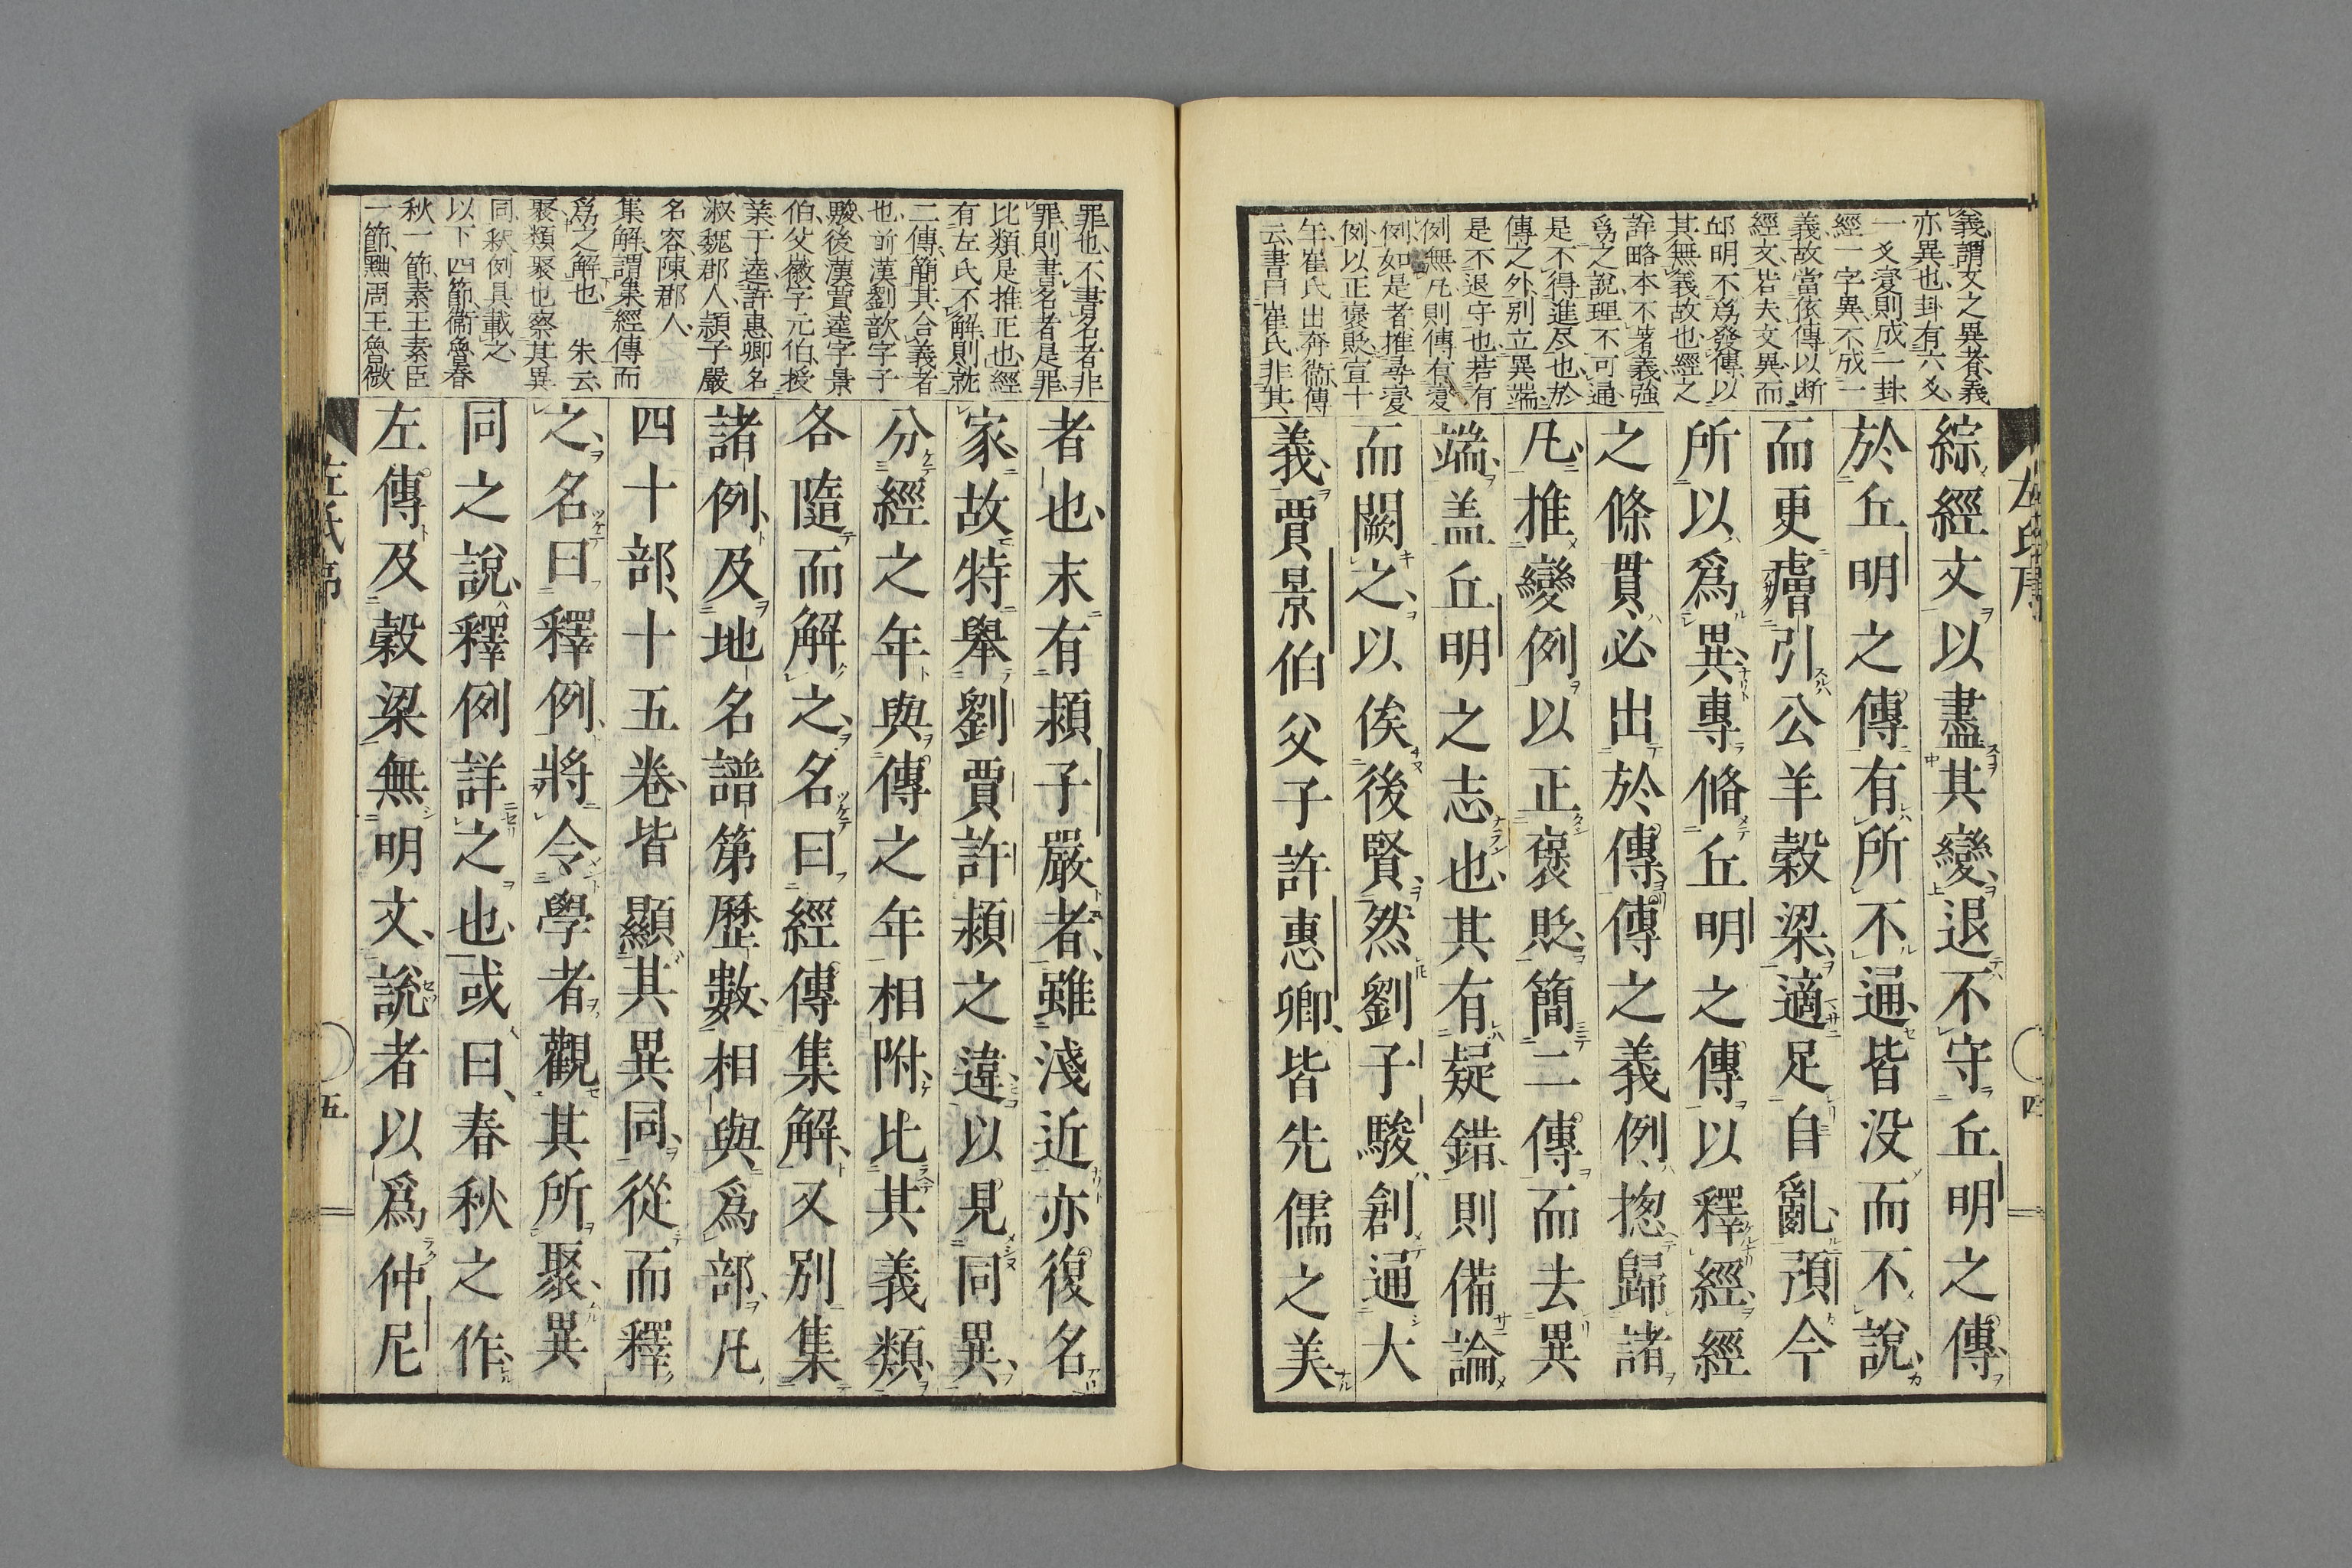 左氏序
四
義謂文之異者義
亦異也卦有六爻
一爻変則成一卦
經一字異不成一
義故當依傳以断
經文若夫文異而
邱明不爲發傳以
其無義故也經之
詳略本不著義強
爲之說理不可通
是不得進尽也於
傳之外別立異端
是不退守也若有
例無凡則傳有変
例如是者推尋変
例以正褒貶宣十
年崔氏出奔衞傳
云書曰崔氏非其
綜經文以盡其變退不守丘明之傳
於丘明之傳有所不通皆没而不說
而更膚引公羊穀梁適足自亂預今
所以爲異專脩丘明之傳以釋經經
之條貫必出於傳傳之義例揔歸諸
凡推變例以正褒貶簡二傳而去異
端盖丘明之志也其有疑錯則備論
而闕之以俟後賢然劉子駿創通大
義賈景伯父子許惠卿皆先儒之美
罪也不書名者非
罪則書名者是罪
比類是推正也經
有左氏不解則就
二傳簡其合義者
也前漢劉歆字子
駿後漢賈逵字景
伯父徽字元伯授
業于逵許惠卿名
淑魏郡人頴子嚴
名容陳郡人
集解謂集經傳而
爲之解也 朱云
聚類聚也察其異
同釈例具載之
以下四節衞魯春
秋一節素王素臣
一節黜周王魯微
者也末有頴子嚴者雖淺近亦復名
家故特舉劉賈許頴之違以見同異
分經之年與傳之年相附比其義類
各隨而解之名曰經傳集解又別集
諸例及地名譜第歷數相與爲部凡
四十部十五卷皆顯其異同從而釋
之名曰釋例將令學者觀其所聚異
同之說釋例詳之也或曰春秋之作
左傳及穀梁無明文說者以爲仲尼
左氏序
五